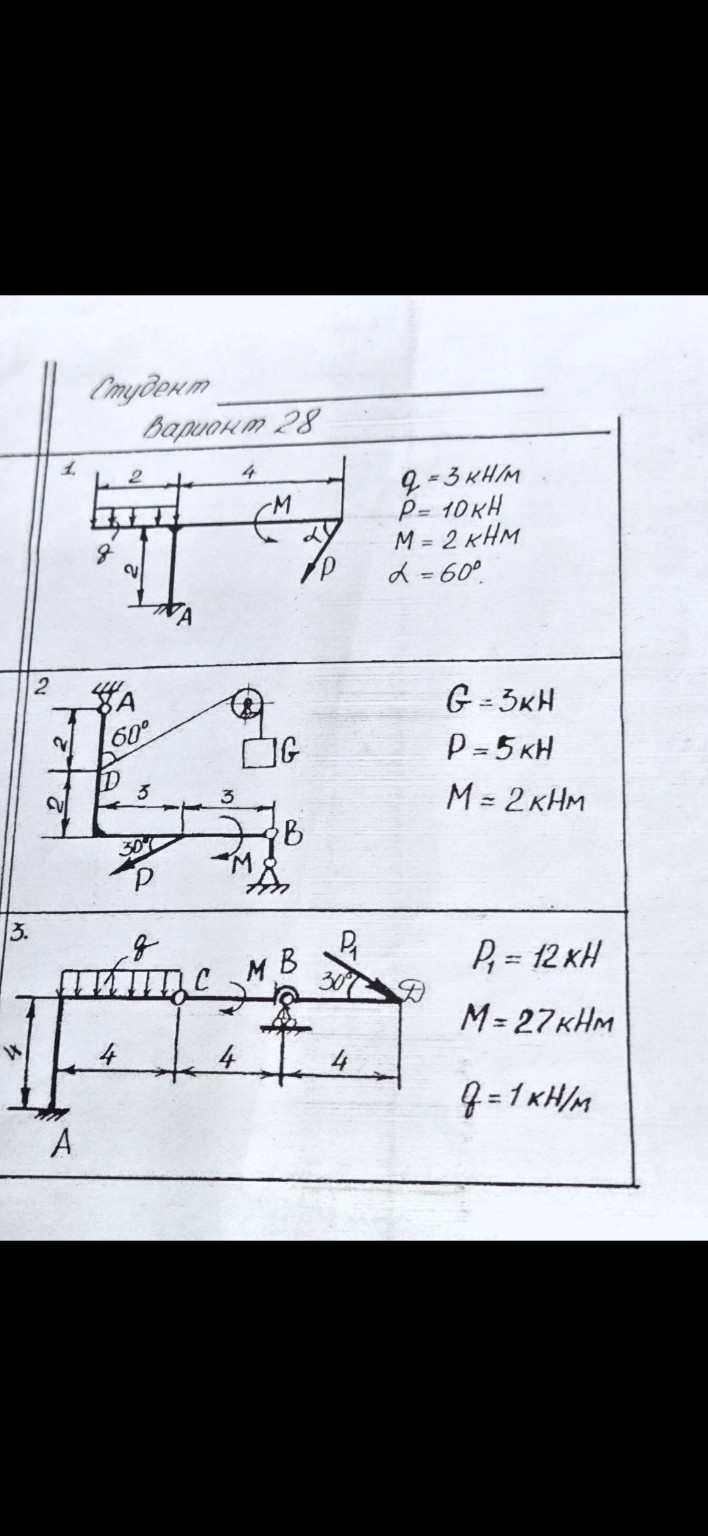 Студент
Вариант 28
1.
2
4
q = 3 кН/м
M
P = 10 кН
q
α
M = 2 кНм
2
P
α = 60°.
A
2
A
G = 3 кН
2
60°
G
P = 5 кН
D
2
3
3
M = 2 кНм
30°
B
M
P
3.
q
P₁
P₁ = 12 кН
C
M
B
30°
D
M = 27 кНм
4
4
4
4
q = 1 кН/м
A